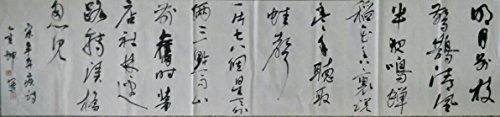 明月别枝
驚鵲清風
半夜鳴蟬
稻花香裏説
豐年聽取
蛙聲
一片七八個星天
外兩三點雨山
前舊時茅
店社林邊
路轉溪橋
忽見
宋辛弃疾詞